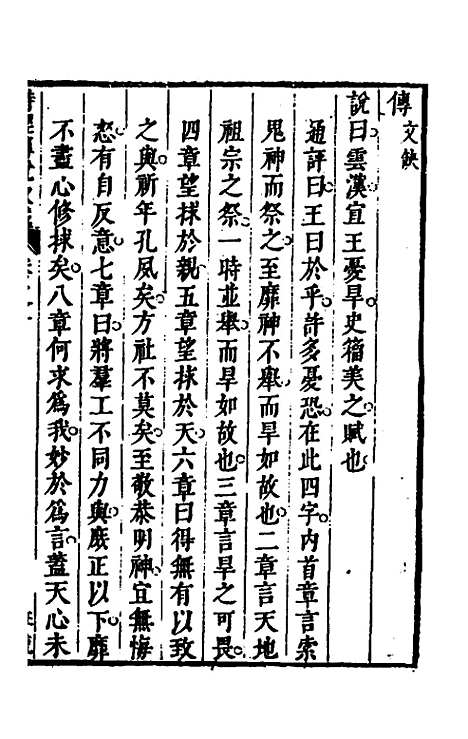 傳文缺
說曰雲漢宣王憂旱史籀美之賦也
通評曰王曰於乎許多憂恐在此四字內首章言索
鬼神而祭之至靡神不舉而旱如故也二章言天地
祖宗之祭一時並舉而旱如故也三章言旱之可畏
四章望捄於親五章望捄於天六章曰得無有以致
之與祈年孔夙矣方社不莫矣至敬恭明神宜無悔
怒有自反意七章曰將羣工不同力與庶正以下靡
不盡心修捄矣八章何求爲我妙於爲言蓋天心未